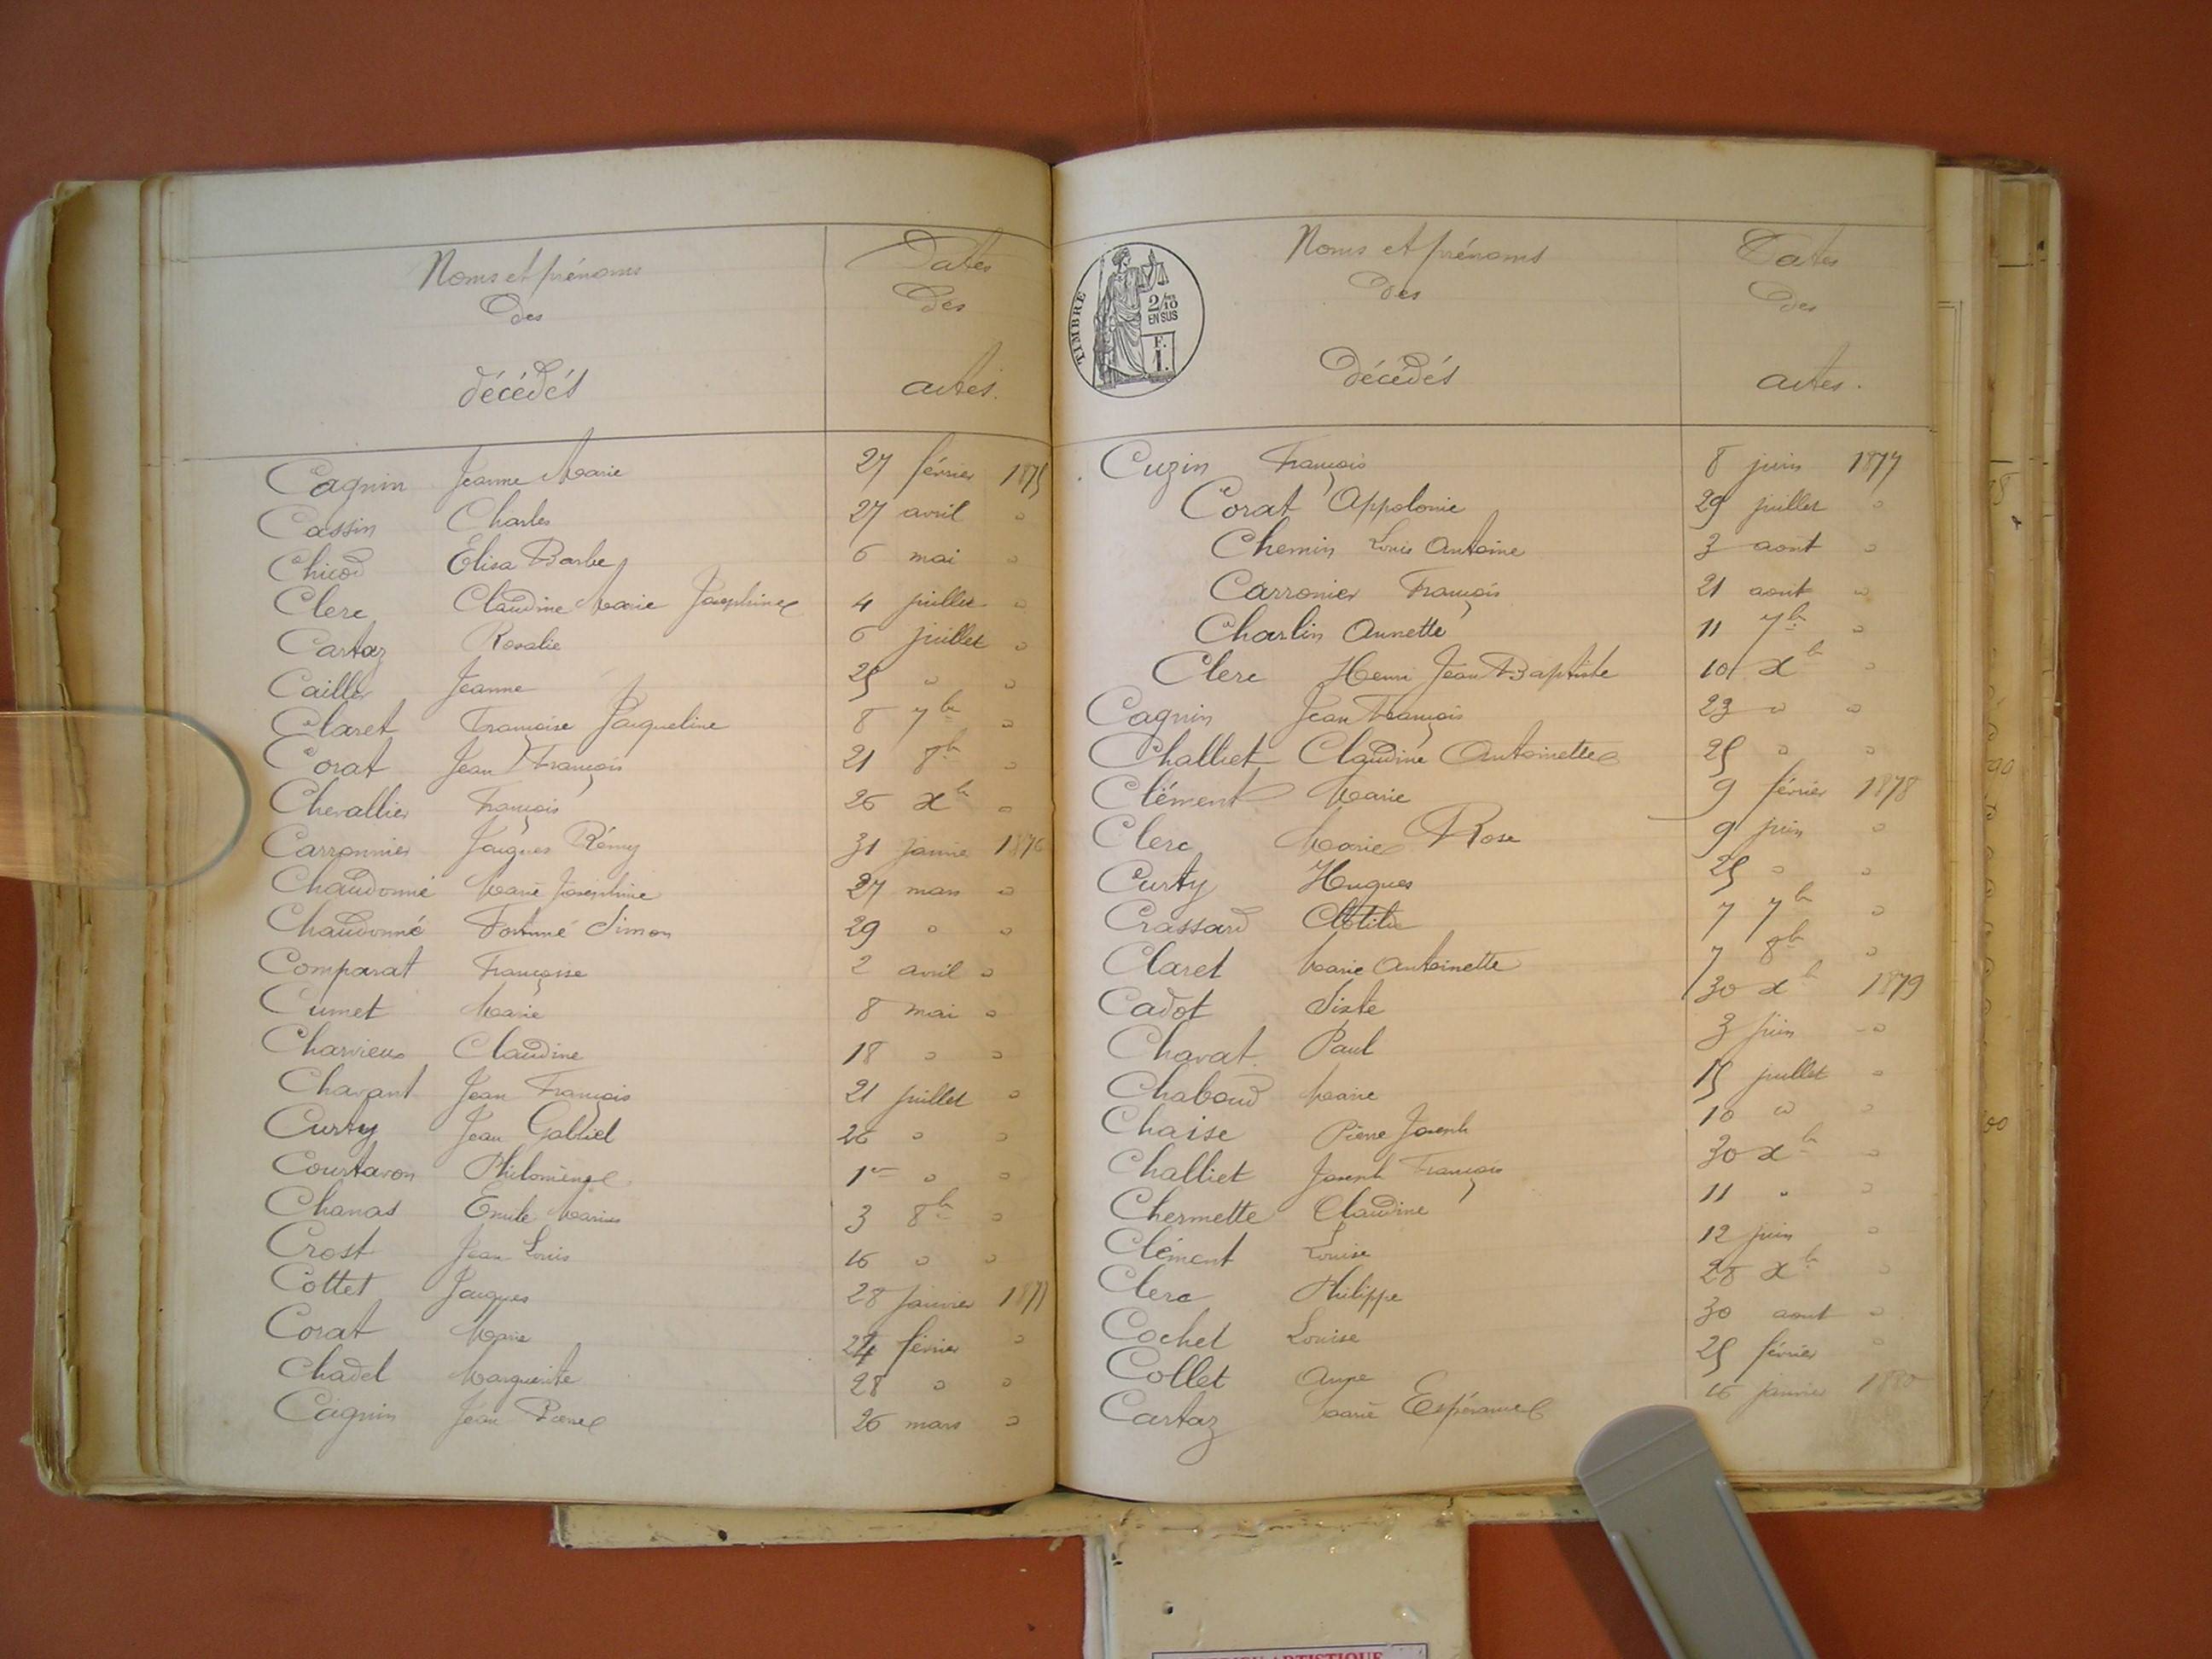 Noms et prénoms
des
décédés
Dates
des
actes.
Cagnin Jeanne Marie 27 février 1875
Cassin Charles 27 avril "
Chicod Elisa Barbe 6 mai "
Clerc Claudine Marie Josephine 4 juillet "
Cartaz Rosalie 6 juillet "
Cailler Jeanne 25 " "
Claret Françoise Jacqueline 8 7bre "
Corat Jean François 21 8bre "
Chevallier François 26 Xbre "
Carronnier Jacques Rémy 31 janvier 1876
Chaudonné Marie Joséphine 27 mars "
Chaudonné Fortuné Simon 29 " "
Comparat Françoise 2 avril "
Cumet Marie 8 mai "
Charvieux Claudine 18 " "
Chavant Jean François 21 juillet "
Curty Jean Gabriel 26 " "
Courtavon Philomène 1er " "
Chanas Emile Marius 3 8bre "
Crost Jean Louis 16 " "
Cottet Jacques 28 janvier 1877
Corat Marie 24 février "
Chadel Marguerite 28 " "
Cagnin Jean Pierre 26 mars "
TIMBRE
2/10 EN SUS
F. 1.
Noms et prénoms
des
décédés
Dates
des
actes.
Cuzin François 8 juin 1877
Corat Appolonie 29 juillet "
Chemin Louis Antoine 3 aout "
Carronier François 21 aout "
Charlin Annette 11 7bre "
Clerc Henri Jean Baptiste 10 Xbre "
Cagnin Jean François 23 " "
Challiet Claudine Antoinette 25 " "
Clément Marie 9 février 1878
Clerc Marie Rose 9 juin "
Curty Hugues 25 " "
Crassard Clotilde 7 7bre "
Claret Marie Antoinette 7 8bre "
Cadot Sixte 30 Xbre 1879
Chavat Paul 3 juin "
Chaboud Marie 15 juillet "
Chaise Pierre Joseph 10 " "
Challiet Joseph François 30 Xbre "
Chermette Claudine 11 " "
Clément Louise 12 juin "
Clerc Philippe 28 Xbre "
Cochet Louise 30 aout "
Collet Anne 25 février "
Cartaz Marie Espérance 16 janvier 1880